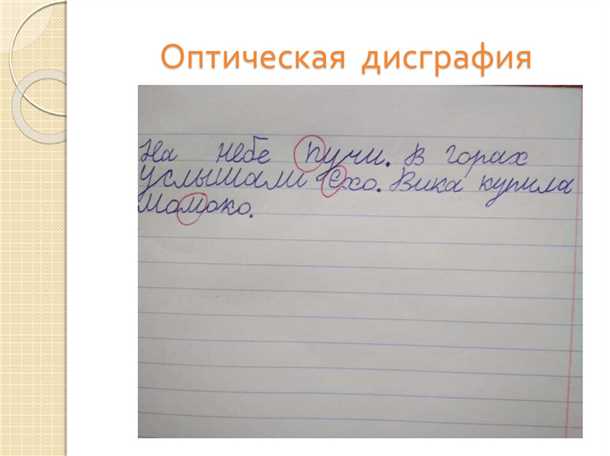 Оптическая дисграфия
На небе пучи. В горах
услышали ехо. Вика купила
момоко.